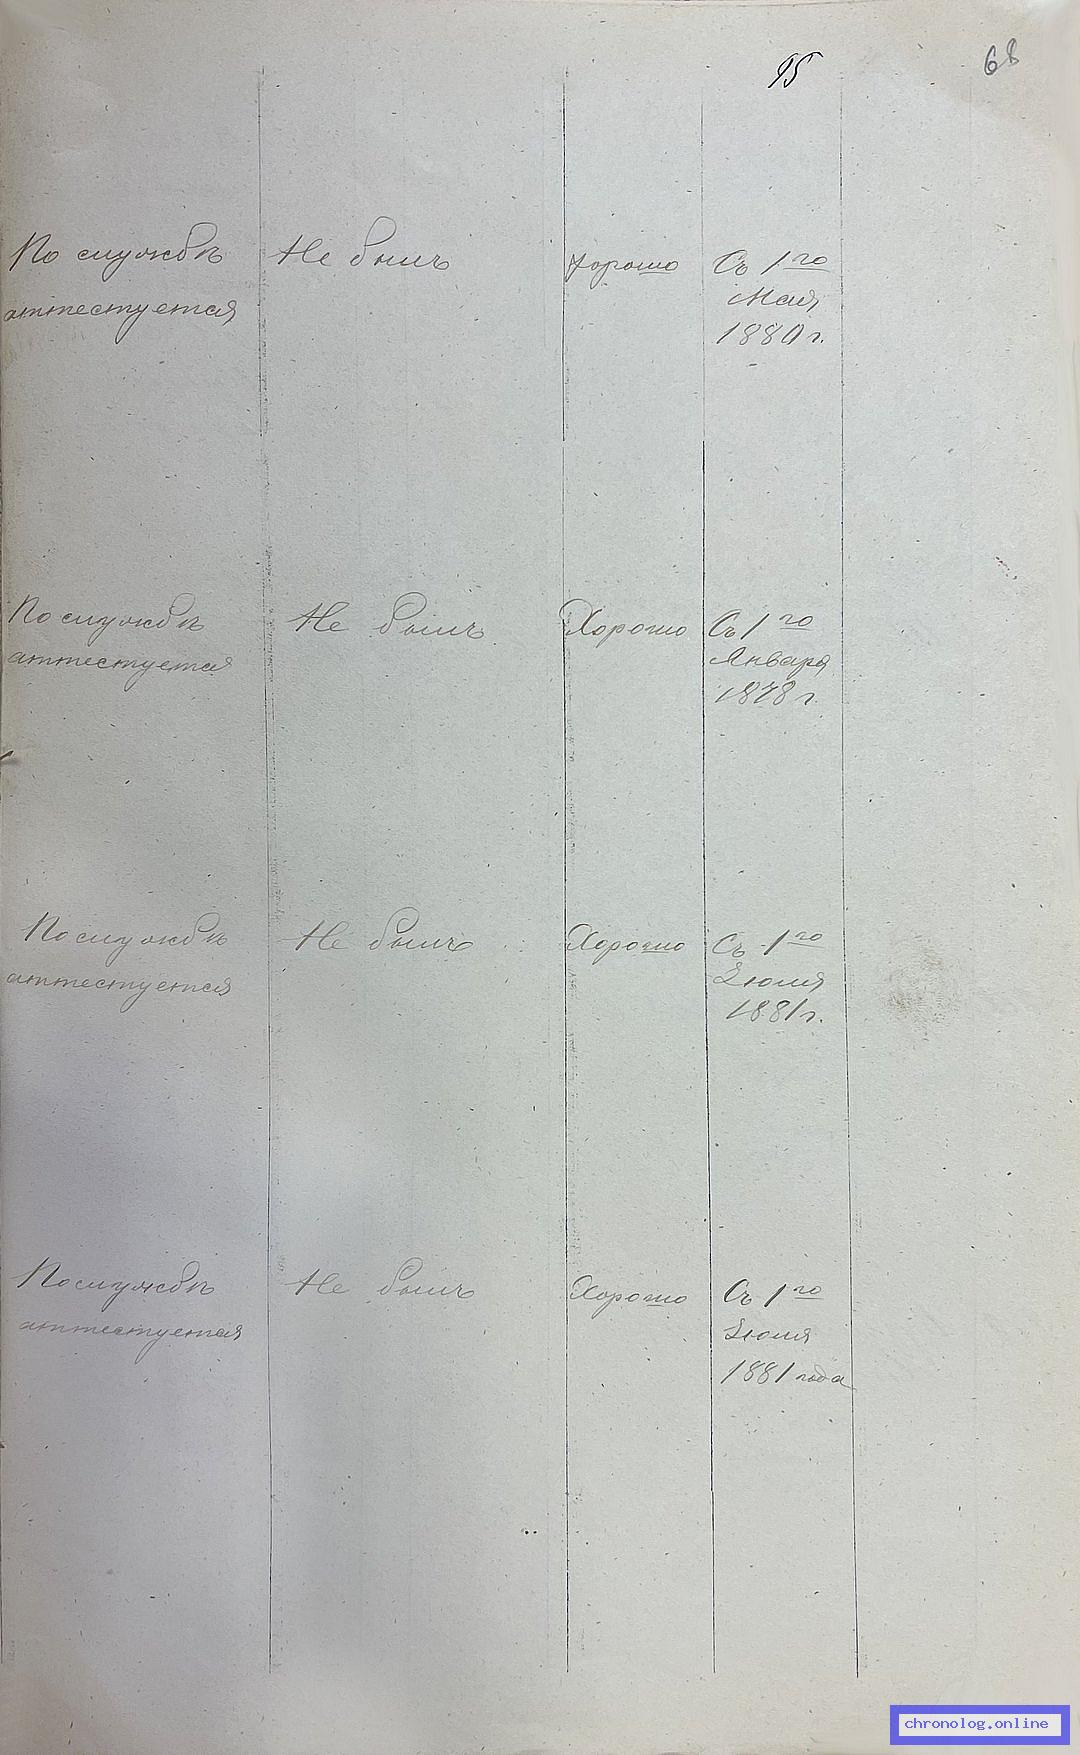 95
68
По службѣ
аттестуется
Не былъ
хорошо
Съ 1го
Мая
1880 г.
По службѣ
аттестуется
Не былъ
Хорошо
Съ 1го
Января
1878 г.
По службѣ
аттестуется
Не былъ
Хорошо
Съ 1го
Июля
1881 г.
По службѣ
аттестуется
Не былъ
Хорошо
Съ 1го
Июля
1881 года
chronolog.online